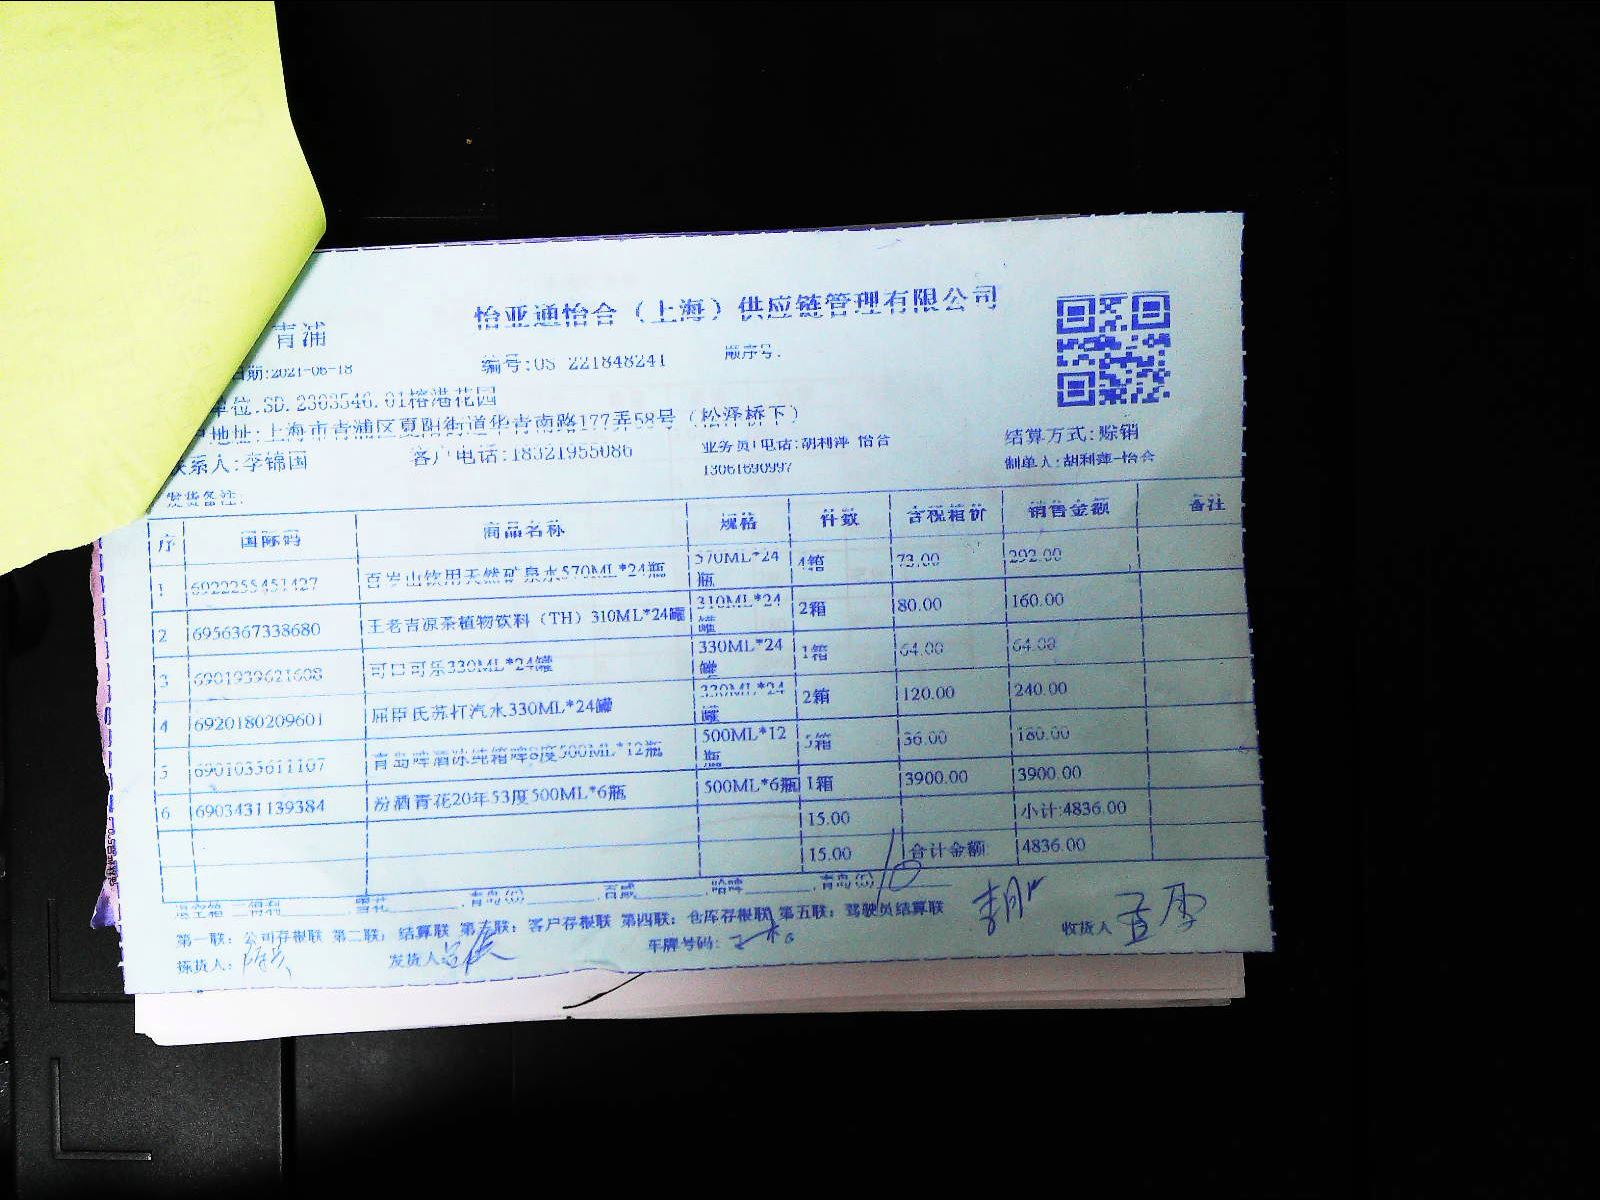 怡亚通怡合（上海）供应链管理有限公司
青浦
日期:2021-06-18 编号:OS 221848241 顺序号:
单位:SD.2303546.01榕港花园
地址:上海市青浦区夏阳街道华青南路177弄58号（松泽桥下）
联系人:李锦国 客户电话:18321955086 业务员/电话:胡利萍-怡合 13061690997
结算方式:赊销
制单人:胡利萍-怡合
发货备注:
序 国际码 商品名称 规格 件数 含税箱价 销售金额 备注
1 6922255451427 百岁山饮用天然矿泉水570ML*24瓶 570ML*24瓶 4箱 73.00 292.00
2 6956367338680 王老吉凉茶植物饮料（TH）310ML*24罐 310ML*24罐 2箱 80.00 160.00
3 6901939621608 可口可乐330ML*24罐 330ML*24罐 1箱 64.00 64.00
4 6920180209601 屈臣氏苏打汽水330ML*24罐 330ML*24罐 2箱 120.00 240.00
5 6901035611107 青岛啤酒冰纯箱啤8度500ML*12瓶 500ML*12瓶 5箱 36.00 180.00
6 6903431139384 汾酒青花20年53度500ML*6瓶 500ML*6瓶 1箱 3900.00 3900.00
15.00 小计:4836.00
15.00 合计金额 4836.00
退空箱 三得利 雪花 青岛(小) 百威 哈啤 青岛(小) 10
第一联：公司存根联 第二联：结算联 第三联：客户存根联 第四联：仓库存根联 第五联：驾驶员结算联
拣货人: 发货人 车牌号码: 收货人